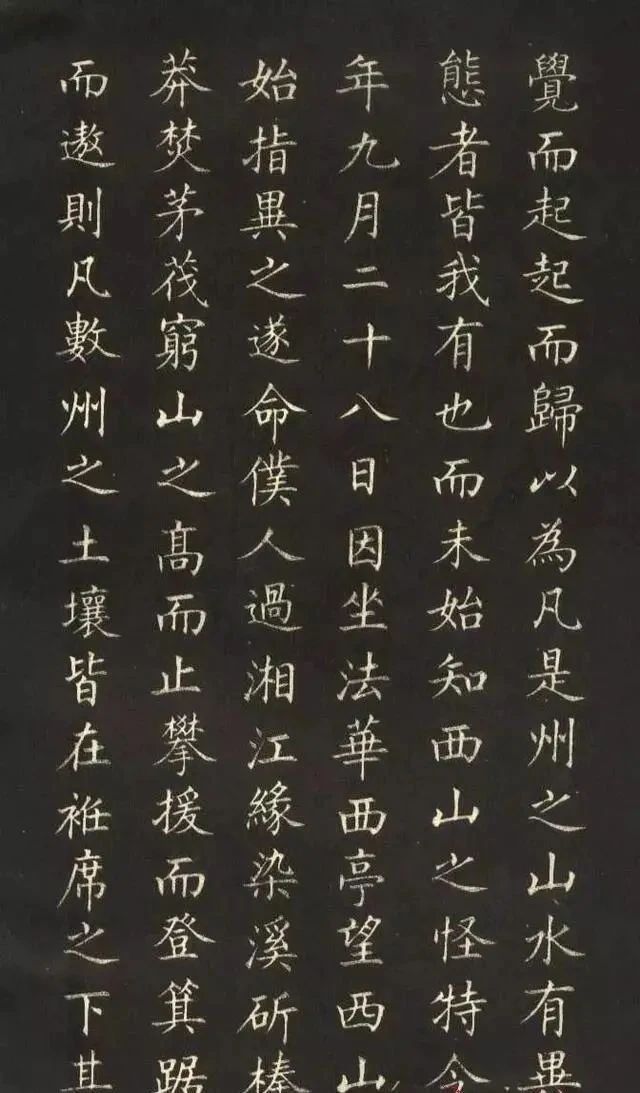 覺而起起而歸以為凡是州之山水有異
態者皆我有也而未始知西山之怪特今
年九月二十八日因坐法華西亭望西山
始指異之遂命僕人過湘江緣染溪斫榛
莽焚茅茷窮山之高而止攀援而登箕踞
而遨則凡數州之土壤皆在袵席之下其